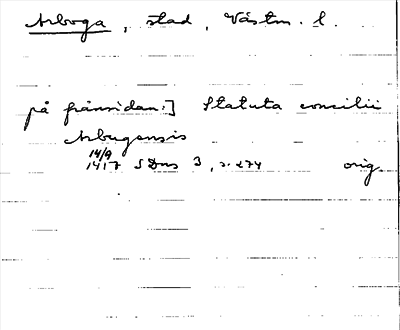 Arboga, stad, Västm. l.
på frånsidan:] Statuta concilii
Arbugensis
14/9
1417 SDns 3, s. 274 orig.